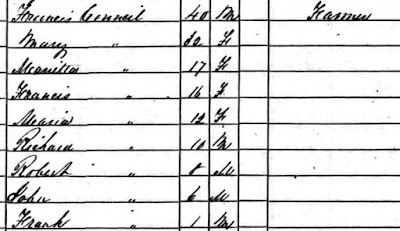 Francis Conneil 40 M Farmer
Mary " 32 F
Maritta " 17 F
Francis " 16 F
Maria " 12 F
Richard " 10 M
Robert " 8 M
John " 6 M
Frank " 1 M